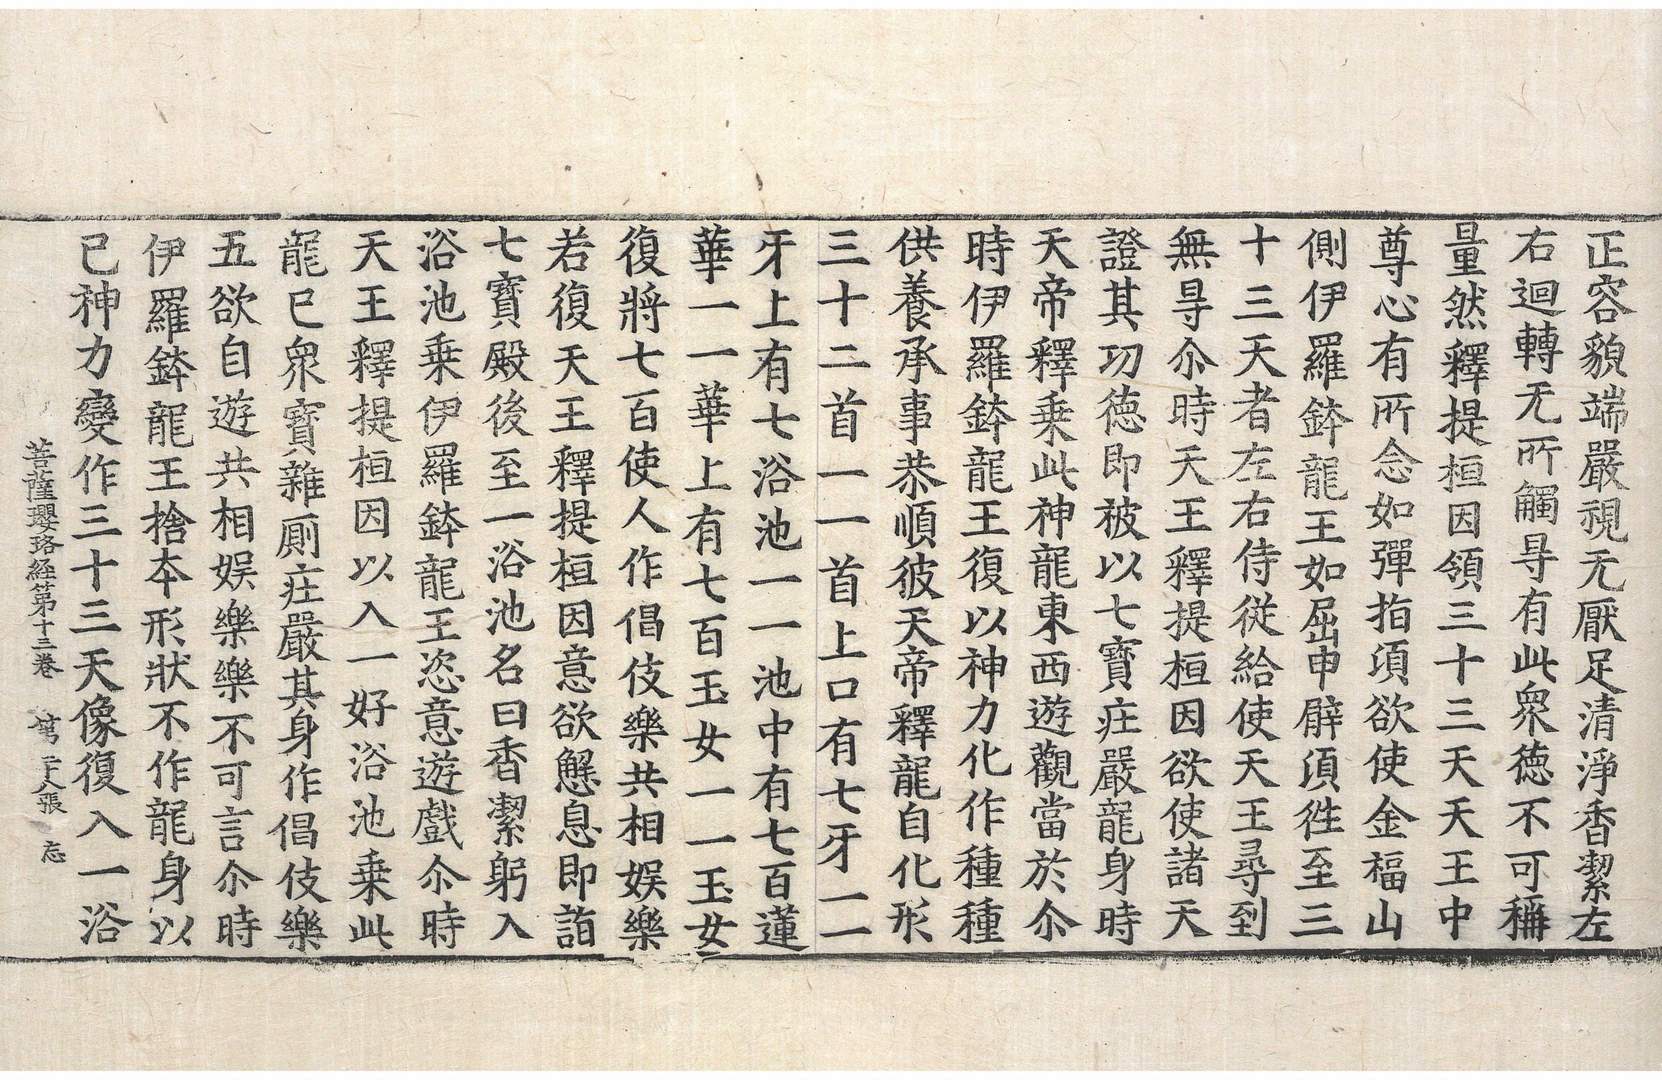 正容貌端嚴視无厭足清淨香潔左
右迴轉无所觸㝵有此眾德不可稱
量然釋提桓因領三十三天天王中
尊心有所念如彈指頃欲使金福山
側伊羅鉢龍王如屈申臂須往至三
十三天者左右侍從給使天王尋到
無㝵尒時天王釋提桓因欲使諸天
證其功德即被以七寶莊嚴龍身時
天帝釋乘此神龍東西遊觀當於尒
時伊羅鉢龍王復以神力化作種種
供養承事恭順彼天帝釋龍自化形
三十二首一一首上口有七牙一一
牙上有七浴池一一池中有七百蓮
華一一華上有七百玉女一一玉女
復將七百使人作倡伎樂共相娛樂
若復天王釋提桓因意欲懈息即詣
七寶殿後至一浴池名曰香潔躬入
浴池乘伊羅鉢龍王恣意遊戲尒時
天王釋提桓因以入一好浴池乘此
龍已眾寶雜廁庄嚴其身作倡伎樂
五欲自遊共相娛樂樂不可言尒時
伊羅鉢龍王捨本形狀不作龍身以
已神力變作三十三天像復入一浴
菩薩瓔珞経第十三卷 第二十八張 忘